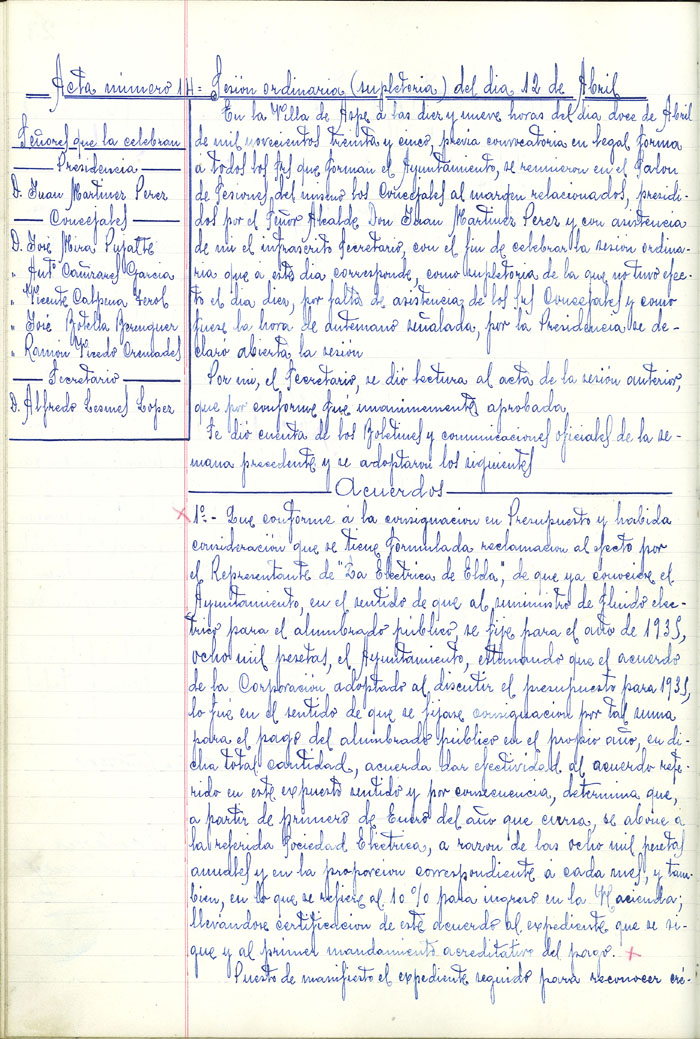 Acta número 14 = Sesión ordinaria (supletoria) del dia 12 de Abril
Señores que la celebran
Presidencia
D. Juan Martinez Perez
Concejales
D. José Mira Pujalte
" Antº Cañizares Garcia
" Vicente Calpena Ferol
" José Botella Berenguer
" Ramón Vicedo Cremades
Secretario
D. Alfredo Lesmes Lopez
En la Villa de Aspe a las diez y nueve horas del dia doce de Abril
de mil novecientos treinta y cinco, previa convocatoria en legal forma
a todos los Srs que forman el Ayuntamiento, se reunieron en el Salon
de Sesiones del mismo los Concejales al margen relacionados, presidi-
dos por el Señor Alcalde Don Juan Martinez Perez y con asistencia
de mi el infrascrito Secretario, con el fin de celebrar la sesión ordina-
ria que a este dia corresponde, como supletoria de la que no tuvo efec-
to el dia diez, por falta de asistencia de los Srs Concejales y como
fuese la hora de antemano señalada, por la Presidencia se de-
claró abierta la sesión
Por mi, el Secretario, se dió lectura al acta de la sesión anterior,
que por conforme fué unanimemente aprobada
Se dió cuenta de los Boletines y comunicaciones oficiales de la se-
mana precedente y se adoptaron los siguientes
Acuerdos
1º.- Que conforme á la consignacion en Presupuesto y habida
consideración que se tiene formulada reclamacion al efecto por
el Representante de "La Electrica de Elda", de que ya conociese el
Ayuntamiento, en el sentido de que al suministro de fluido elec-
trico para el alumbrado público, se fije para el año de 1935,
ocho mil pesetas, el Ayuntamiento, estimando que el acuerdo
de la Corporación adoptado al discutir el presupuesto para 1935,
lo fué en el sentido de que se fijase consignacion por tal suma
para el pago del alumbrado público en el propio año, en di-
cha total cantidad, acuerda dar efectividad al acuerdo refe-
rido en este expuesto sentido y por consecuencia, determina que,
a partir de primero de Enero del año que cursa, se abone a
la referida Sociedad Electrica, a razon de las ocho mil pesetas
anuales y en la proporcion correspondiente á cada mes, y tam-
bien, en lo que se refiere al 10 % para ingreso en la Hacienda;
llevandose certificacion de este acuerdo al expediente que se si-
gue y al primer mandamiento acreditativo del pago.
Puesto de manifiesto el expediente seguido para reconocer cré-